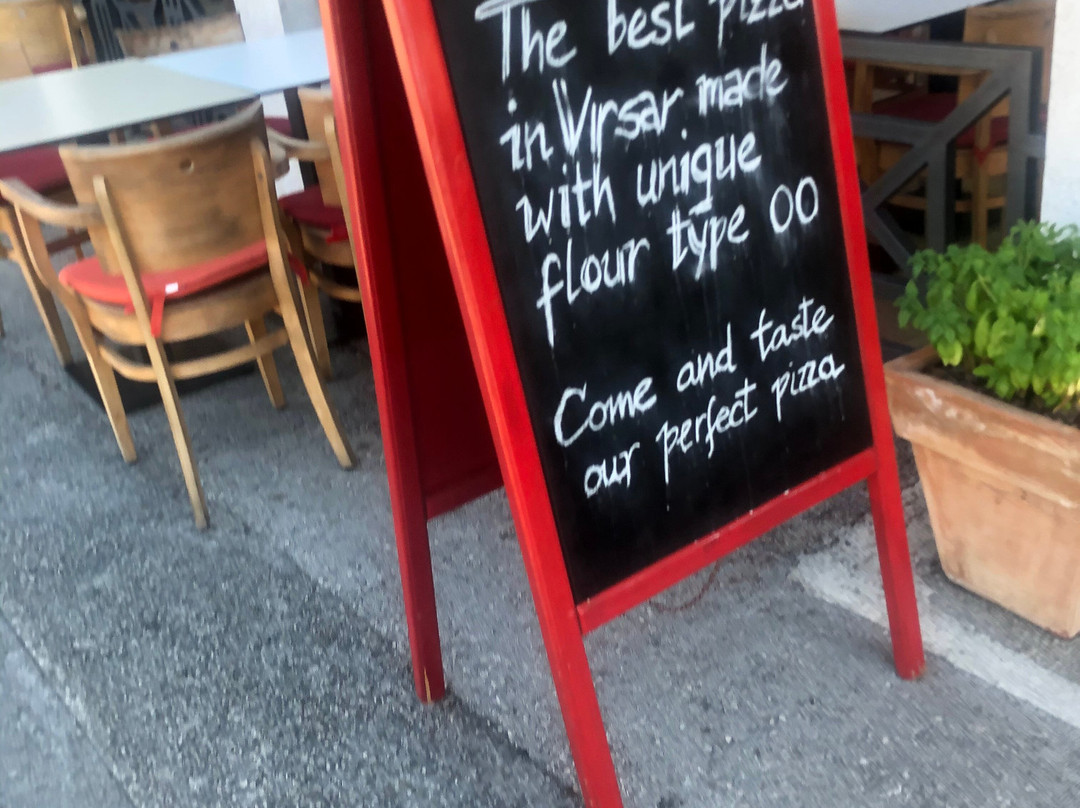 The best pizza
in Vrsar made
with unique
flour type 00
Come and taste
our perfect pizza